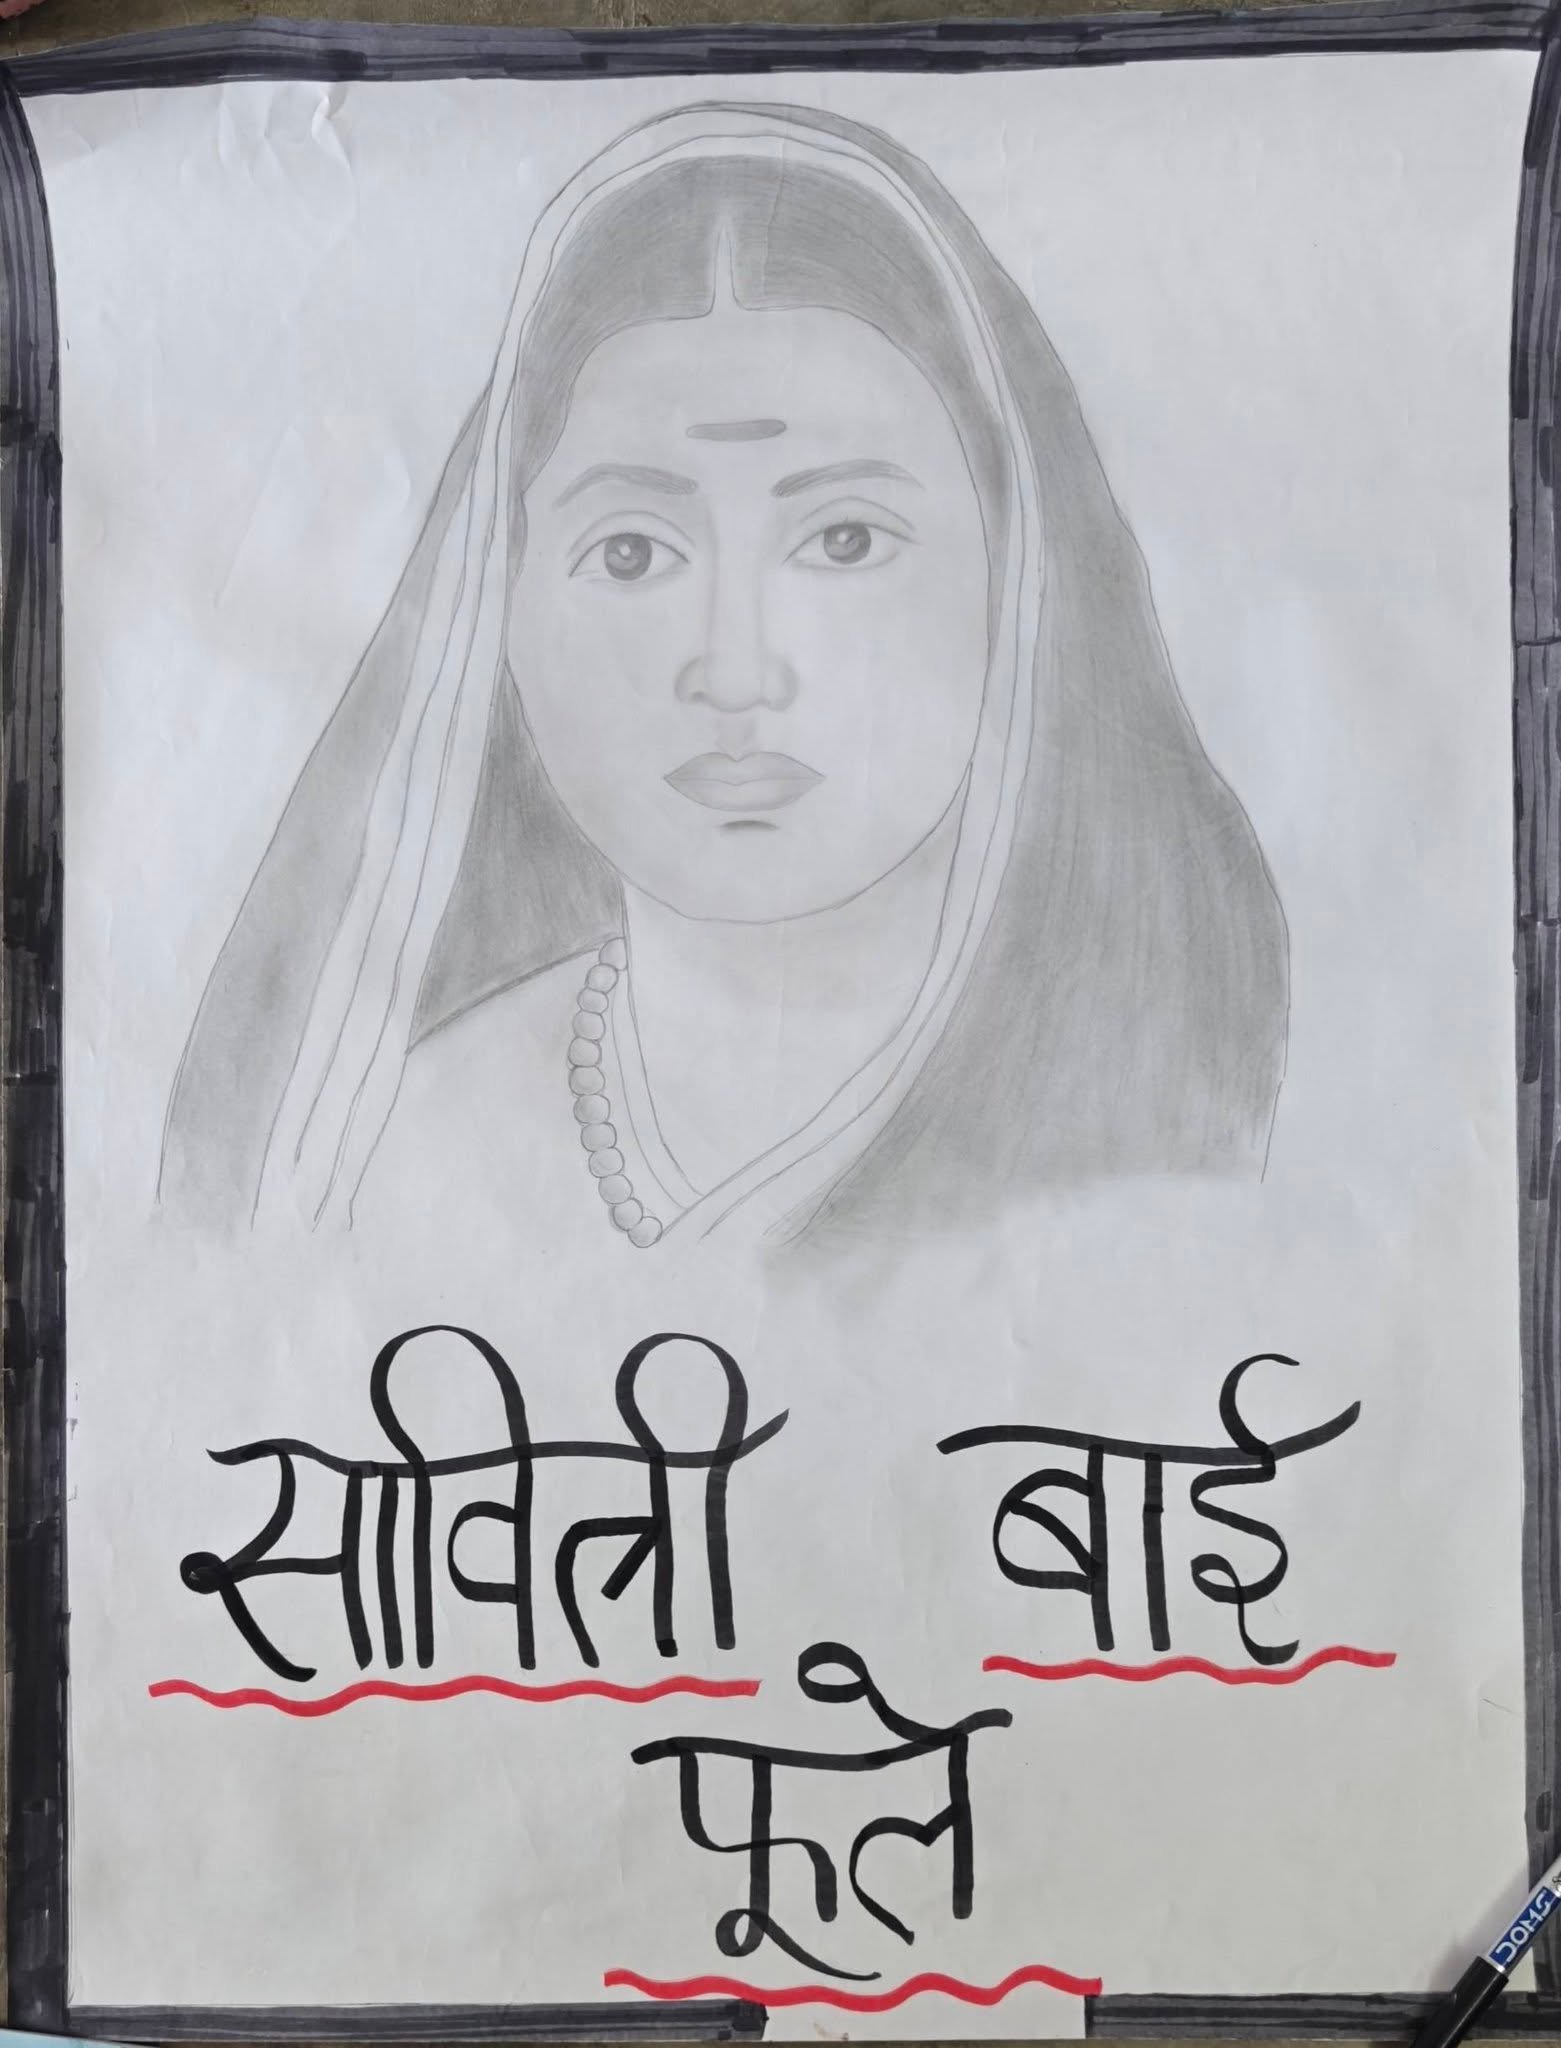 सावित्री बाई
फूले
DOMS